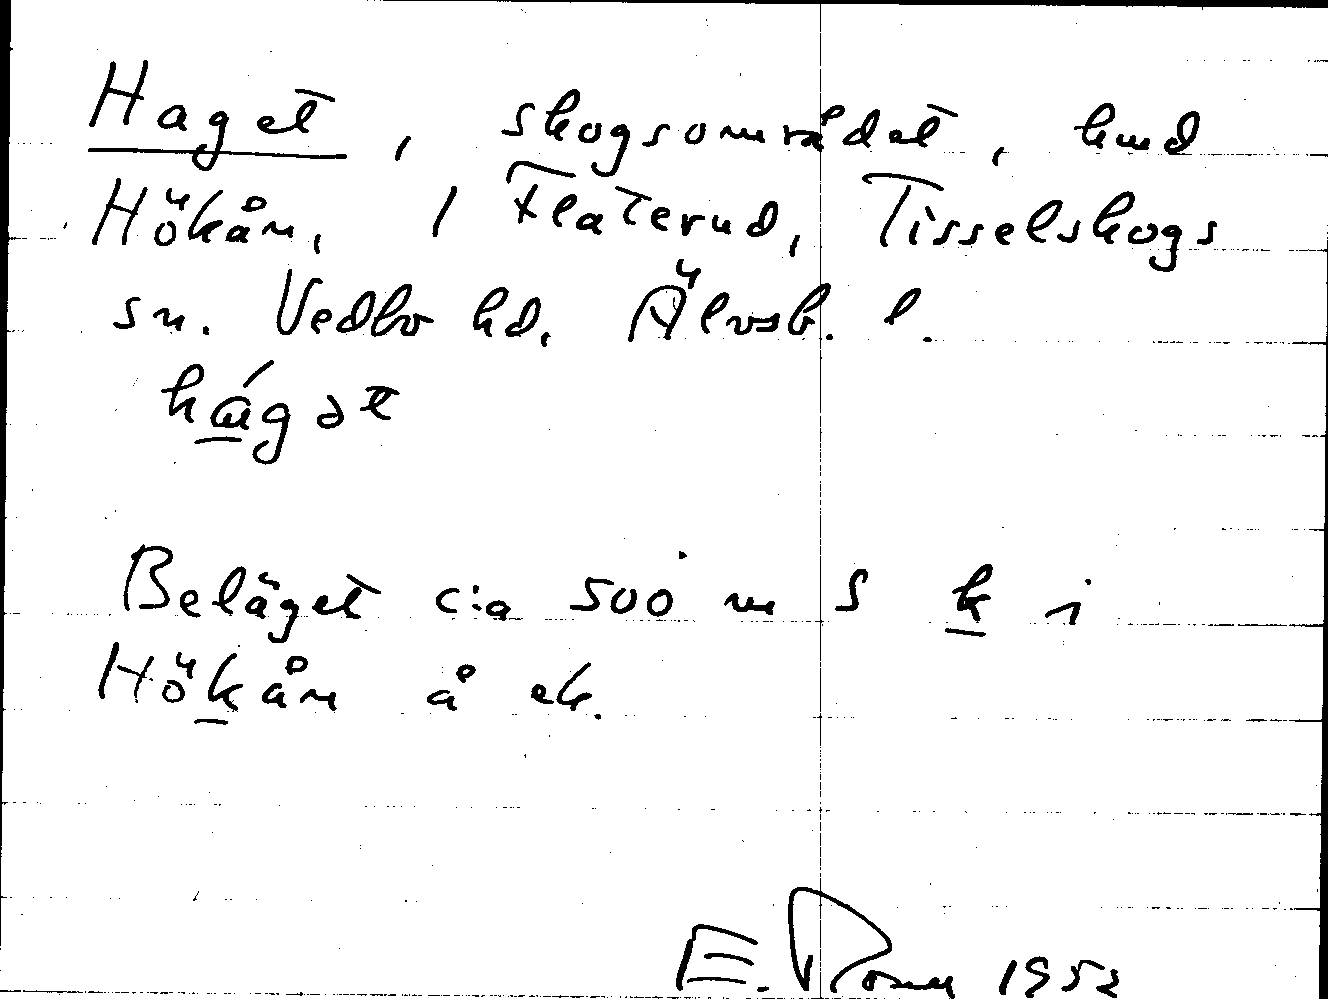 Haget, skogsområdet, hmd
Hökån, 1 Flaterud, Tisselskogs
sn. Vedbo hd. Älvsb. l.
hágət
Beläget c:a 500 m S k i
Hökån å ek.
E. 1952